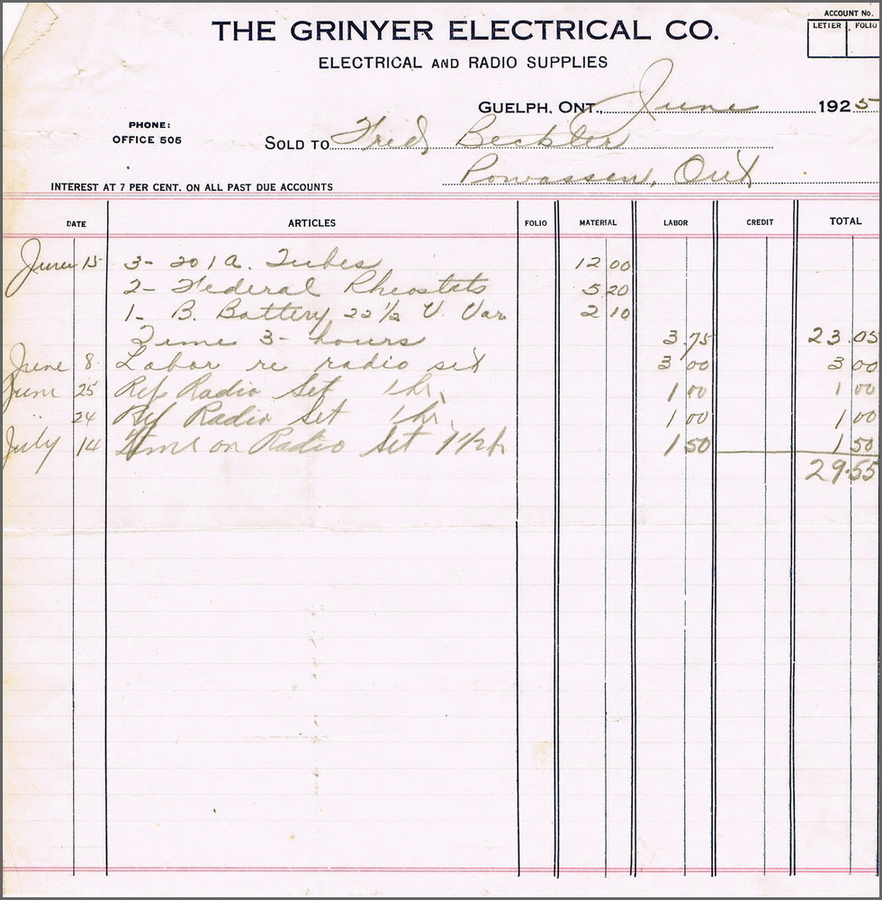 ACCOUNT No.
THE GRINYER ELECTRICAL CO.
LETTER FOLIO
ELECTRICAL AND RADIO SUPPLIES
GUELPH, ONT. June 1925
PHONE:
OFFICE 505
SOLD TO Fred Beckler
Powassen, Ont
INTEREST AT 7 PER CENT. ON ALL PAST DUE ACCOUNTS
DATE ARTICLES FOLIO MATERIAL LABOR CREDIT TOTAL
June 15 3- 201a. Tubes 12 00
2- Federal Rheostats 5 20
1- B. Battery 22 1/2 V. Var 2 10
Time 3- hours 3.75 23.05
June 8 Labor re radio set 3 00 3 00
June 25 Radio Set 1 hr. 1 00 1 00
" 24 Radio Set 1 hr. 1 00 1 00
July 14 Time on Radio Set 1 1/2 h 1 50 1 50
29.55